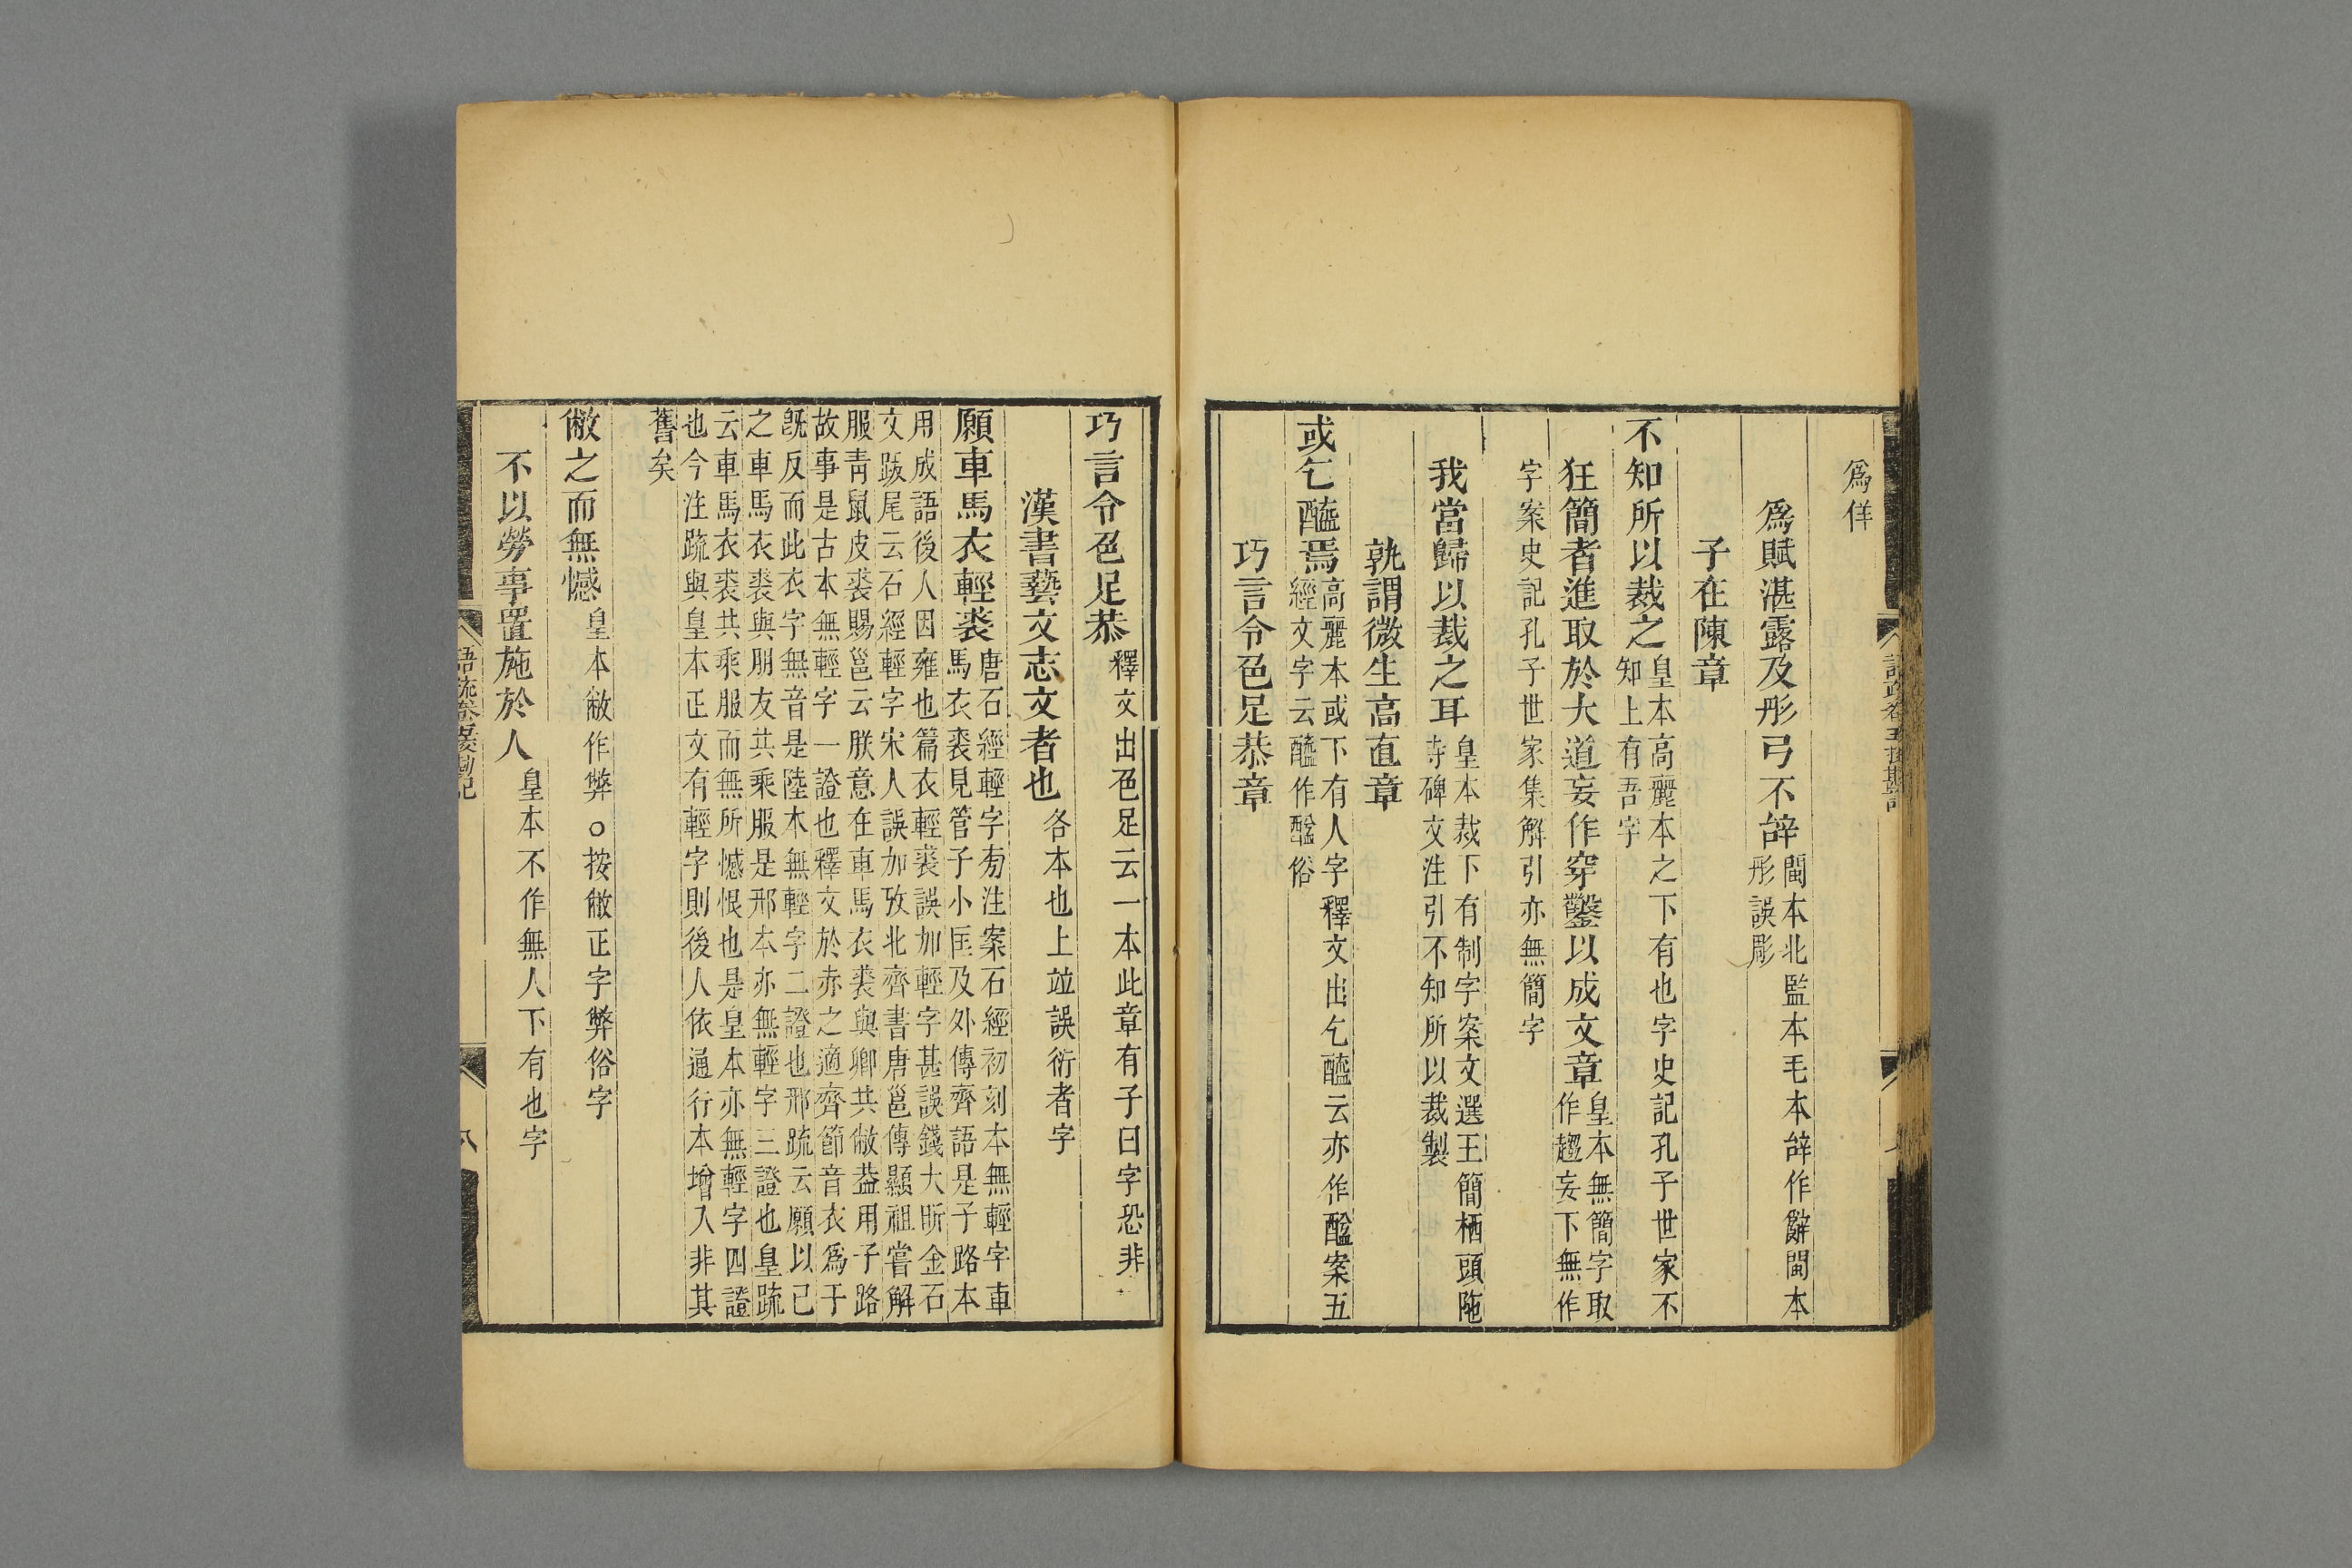 爲佯
爲賦湛露及彤弓不辤閩本北監本毛本辤作辭閩本彤誤彫
子在陳章
不知所以裁之皇本高麗本之下有也字史記孔子世家不知上有吾字
狂簡者進取於大道妄作穿鑿以成文章皇本無簡字取作趨妄下無作
字案史記孔子世家集解引亦無簡字
我當歸以裁之耳皇本裁下有制字案文選王簡栖頭陁寺碑文注引不知所以裁製
孰謂微生高直章
或乞醯焉高麗本或下有人字釋文出乞醯云亦作䤈案五經文字云醯作䤈俗
巧言令色足恭章
巧言令色足恭釋文出色足云一本此章有子曰字恐非
漢書藝文志文者也各本也上並誤衍者字
願車馬衣輕裘唐石經輕字旁注案石經初刻本無輕字車馬衣裘見管子小匡及外傳齊語是子路本
用成語後人因雍也篇衣輕裘誤加輕字甚誤錢大昕金石文跋尾云石經輕字宋人誤加攷北齊書唐邕傳顯祖嘗解
服青鼠皮裘賜邕云朕意在車馬衣裘與卿共敝葢用子路故事是古本無輕字一證也釋文於赤之適齊節音衣爲于
旣反而此衣字無音是陸本無輕字二證也邢疏云願以己之車馬衣裘與朋友共乘服是邢本亦無輕字三證也皇疏
云車馬衣裘共乘服而無所憾恨也是皇本亦無輕字四證也今注疏與皇本正文有輕字則後人依通行本增入非其
舊矣
敝之而無憾皇本敝作弊○按敝正字弊俗字
不以勞事置施於人皇本不作無人下有也字